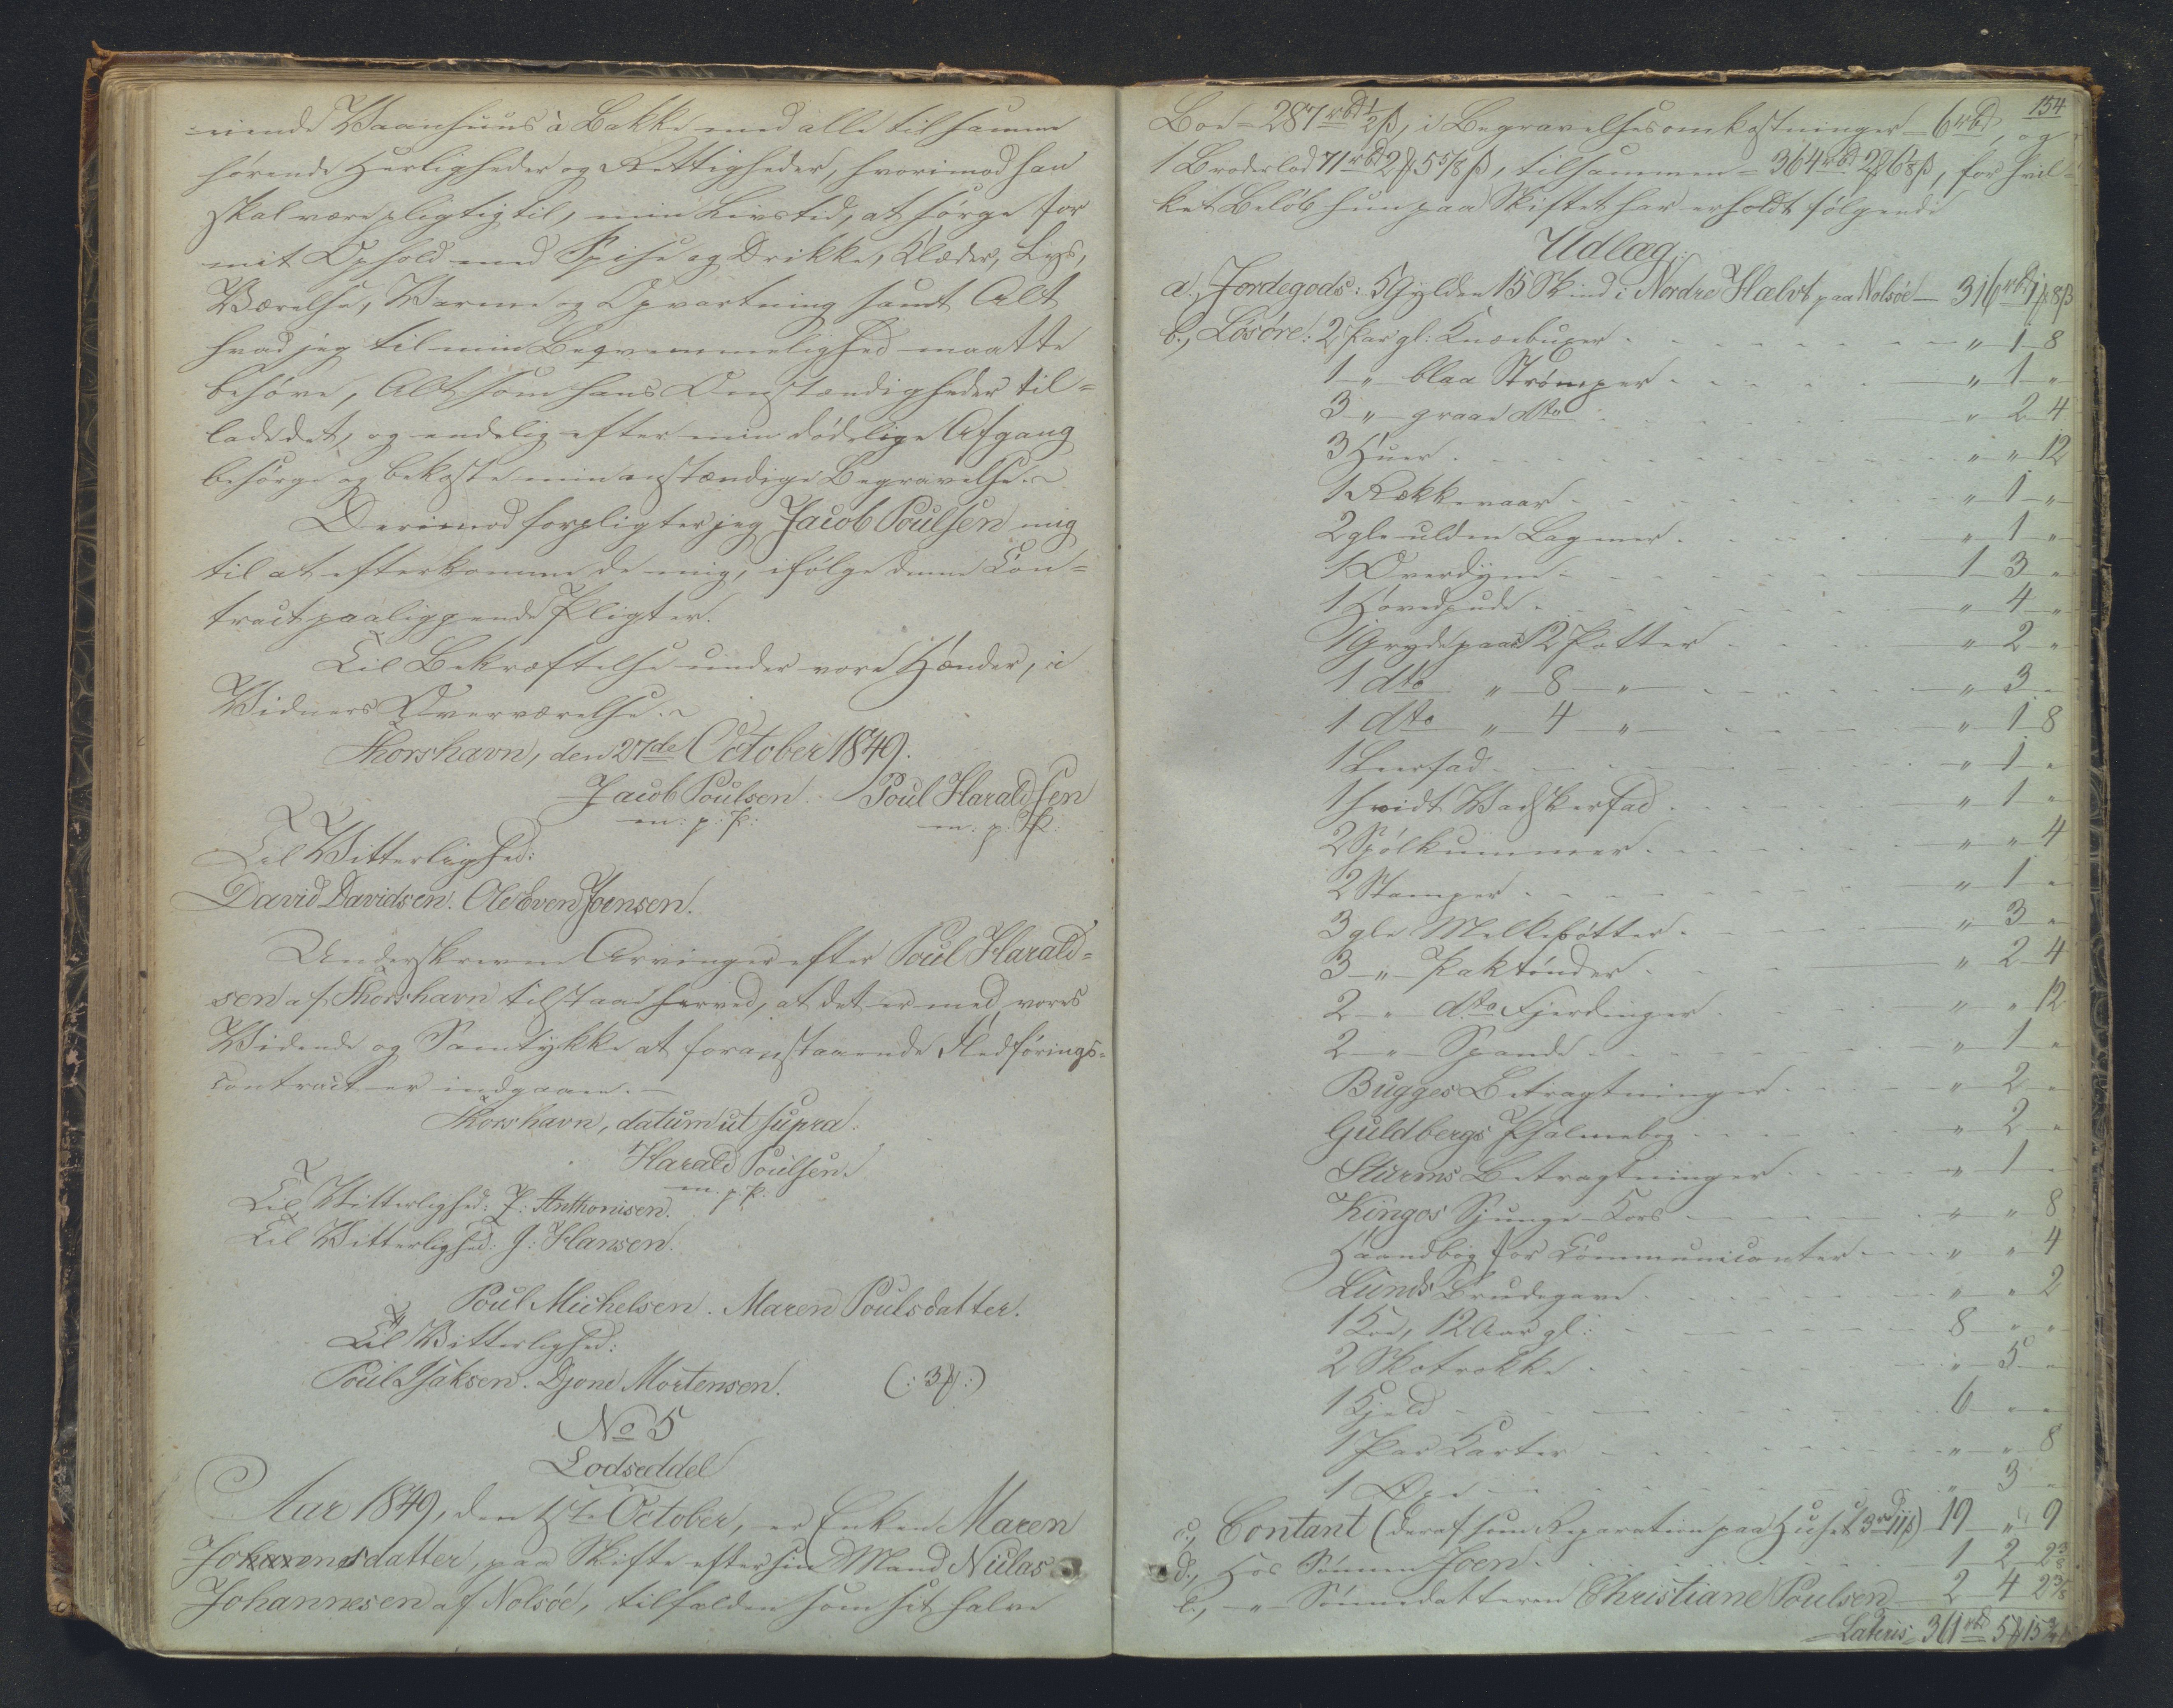 eiende Vaanhuus à Bakke med alle til samme
hørende Herligheder og Rettigheder, hvorimod han
skal være pligtig til, min Livstid, at sørge for
mit Ophold med Spise og Drikke, Klæder, Lys,
Værelse, Varme og Opvartning samt Alt
hvad jeg til min Beqvemmelighed maatte
behøve, Alt som hans Omstændigheder til-
lade det, og endelig efter min dødelige Afgang
besørge og bekoste min anstændige Begravelse.
Derimod forpligter jeg Jacob Poulsen mig
til at efterkomme de mig, ifølge denne Con-
tract paaliggende Pligter.
Til Bekræftelse under vore Hænder, i
Vidners Overværelse.
Thorshavn, den 27de October 1849.
Jacob Poulsen. Poul Haraldsen
m: p: P: m: p: P:
Til Vitterlighed:
David Davidsen. Ole Even Joensen.
Underskrevne Arvinger efter Poul Harald-
sen af Thorshavn tilstaae herved, at det er med vores
Vidende og Samtykke at foranstaaende Fledførings-
contract er indgaaen.
Thorshavn, datum ut supra.
Harald Poulsen.
m. p. P.
Til Vitterlighed: J: Anthonisen.
Til Vitterlighed: J: Hansen.
Poul Michelsen. Maren Poulsdatter.
Til Vitterlighed:
Poul Isaksen. Djone Mortensen. (: 3 ß :)
No 5
Lodseddel
Aar 1849, den October, er Enken Maren
datter, paa Skifte efter sin Mand Niclas
Johannesen af Nolsöe, tilfalden som sit halve
154
Boe = 287 rbd ½ ß, i Begravelsesomkostninger = 6 rbd, og
1 Broderlod 71 rbd 2 5 5/8 ß, tilsammen = 364 rbd 2 6 1/8 ß, for hvil-
ket Beløb hun paa Skiftet har erholdt følgende
Udlæg:
a., Jordegods: 5 Gylden 15 Skind i Nordre Hælvt paa Nolsöe — 316 rbd 1 8 ß
b., Lösöre: 2 Par gl: Knæbuxer " 1 8
1 " blaa Strömper " 1 "
3 " graae dto " 2 4
3 Huer " " 12
1 Rækkevaar " 1 "
2 gle uldne Lagener " 1 "
1 Overdyne 1 3 "
1 Hovedpude " 4 "
1 Gryde paa 12 Potter " 2 "
1 dto " 8 " " 3 "
1 dto " 4 " " 1 8
1 Leerfad " 1 "
1 hvidt Vadskerfad " 1 "
2 Spölkummer " " 4
2 Stamper " 1 "
3 gle Melkebøtter " 3 "
3 " Paktönder " 2 4
2 " dto Fjerdinger " " 12
2 " Spande " 1 "
Bugges Betragtninger " 2 "
Guldbergs Psalmebog " 2 "
Sturms Betragtninger " 1 "
Kingos Sjunge-Kors " " 8
Haandbog for Communicanter " " 4
Lunds Brudegave " " 2
1 Koe, 12 Aar gl: 8 " "
2 Skotrokke " 5 "
1 Kjeld 6 " "
1 Par Karter " " 8
1 Öxe " 3 "
c., Contant (deraf som Reparation paa Huset 3 rbd 11 ß) 19 " 9
d., Hos Sønnen Joen 1 2 2 3/8
e., " Sönnedatteren Christiane Poulsen 2 4 2 3/8
Lateris 361 rbd 5 15 3/4